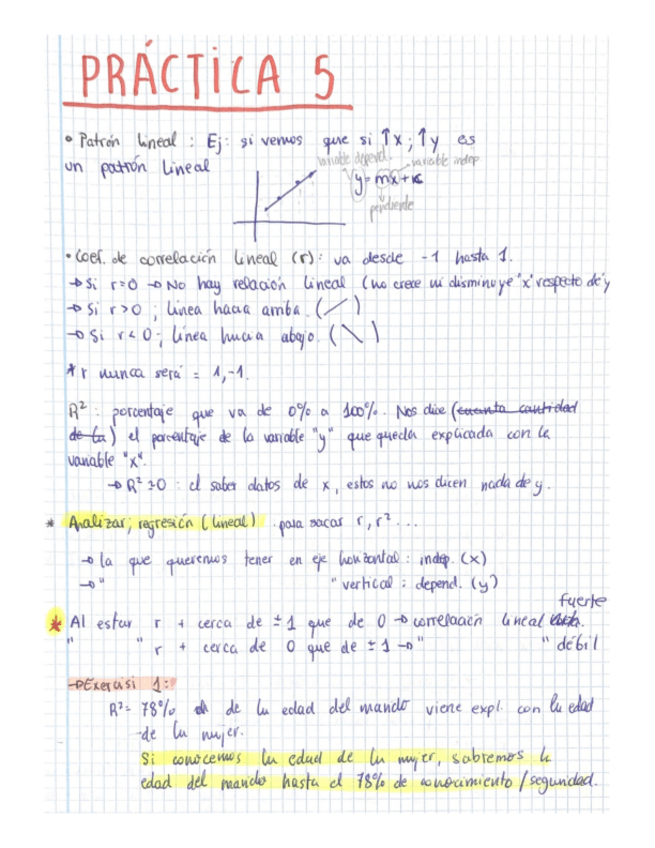 PRÁCTICA 5
• Patrón lineal : Ej: si vemos que si ↑x ; ↑y es
un patrón lineal
variable depend.
variable indep
y = mx + k
pendiente
• Coef. de correlación lineal (r): va desde -1 hasta 1.
→ Si r=0 → No hay relación lineal (no crece ni disminuye "x" respecto de y
→ Si r>0 ; línea hacia arriba. ( / )
→ Si r<0 ; línea hacia abajo. ( \ )
* r nunca será = 1, -1.
R² : porcentaje que va de 0% a 100%. Nos dice (cuanta cantidad
de la) el porcentaje de la variable "y" que queda explicada con la
variable "x".
→ R²=0 : el saber datos de x, estos no nos dicen nada de y.
* Analizar; regresión (lineal) para sacar r, r² ...
→ la que queremos tener en eje horizontal : indep. (x)
→ " " vertical : depend. (y)
* Al estar r + cerca de ±1 que de 0 → correlación lineal fuerte
" " r + cerca de 0 que de ±1 → " " débil
→ Exercisi 1:
R²= 78% de la edad del marido viene expl. con la edad
de la mujer.
Si conocemos la edad de la mujer, sabremos la
edad del marido hasta el 78% de conocimiento / seguridad.